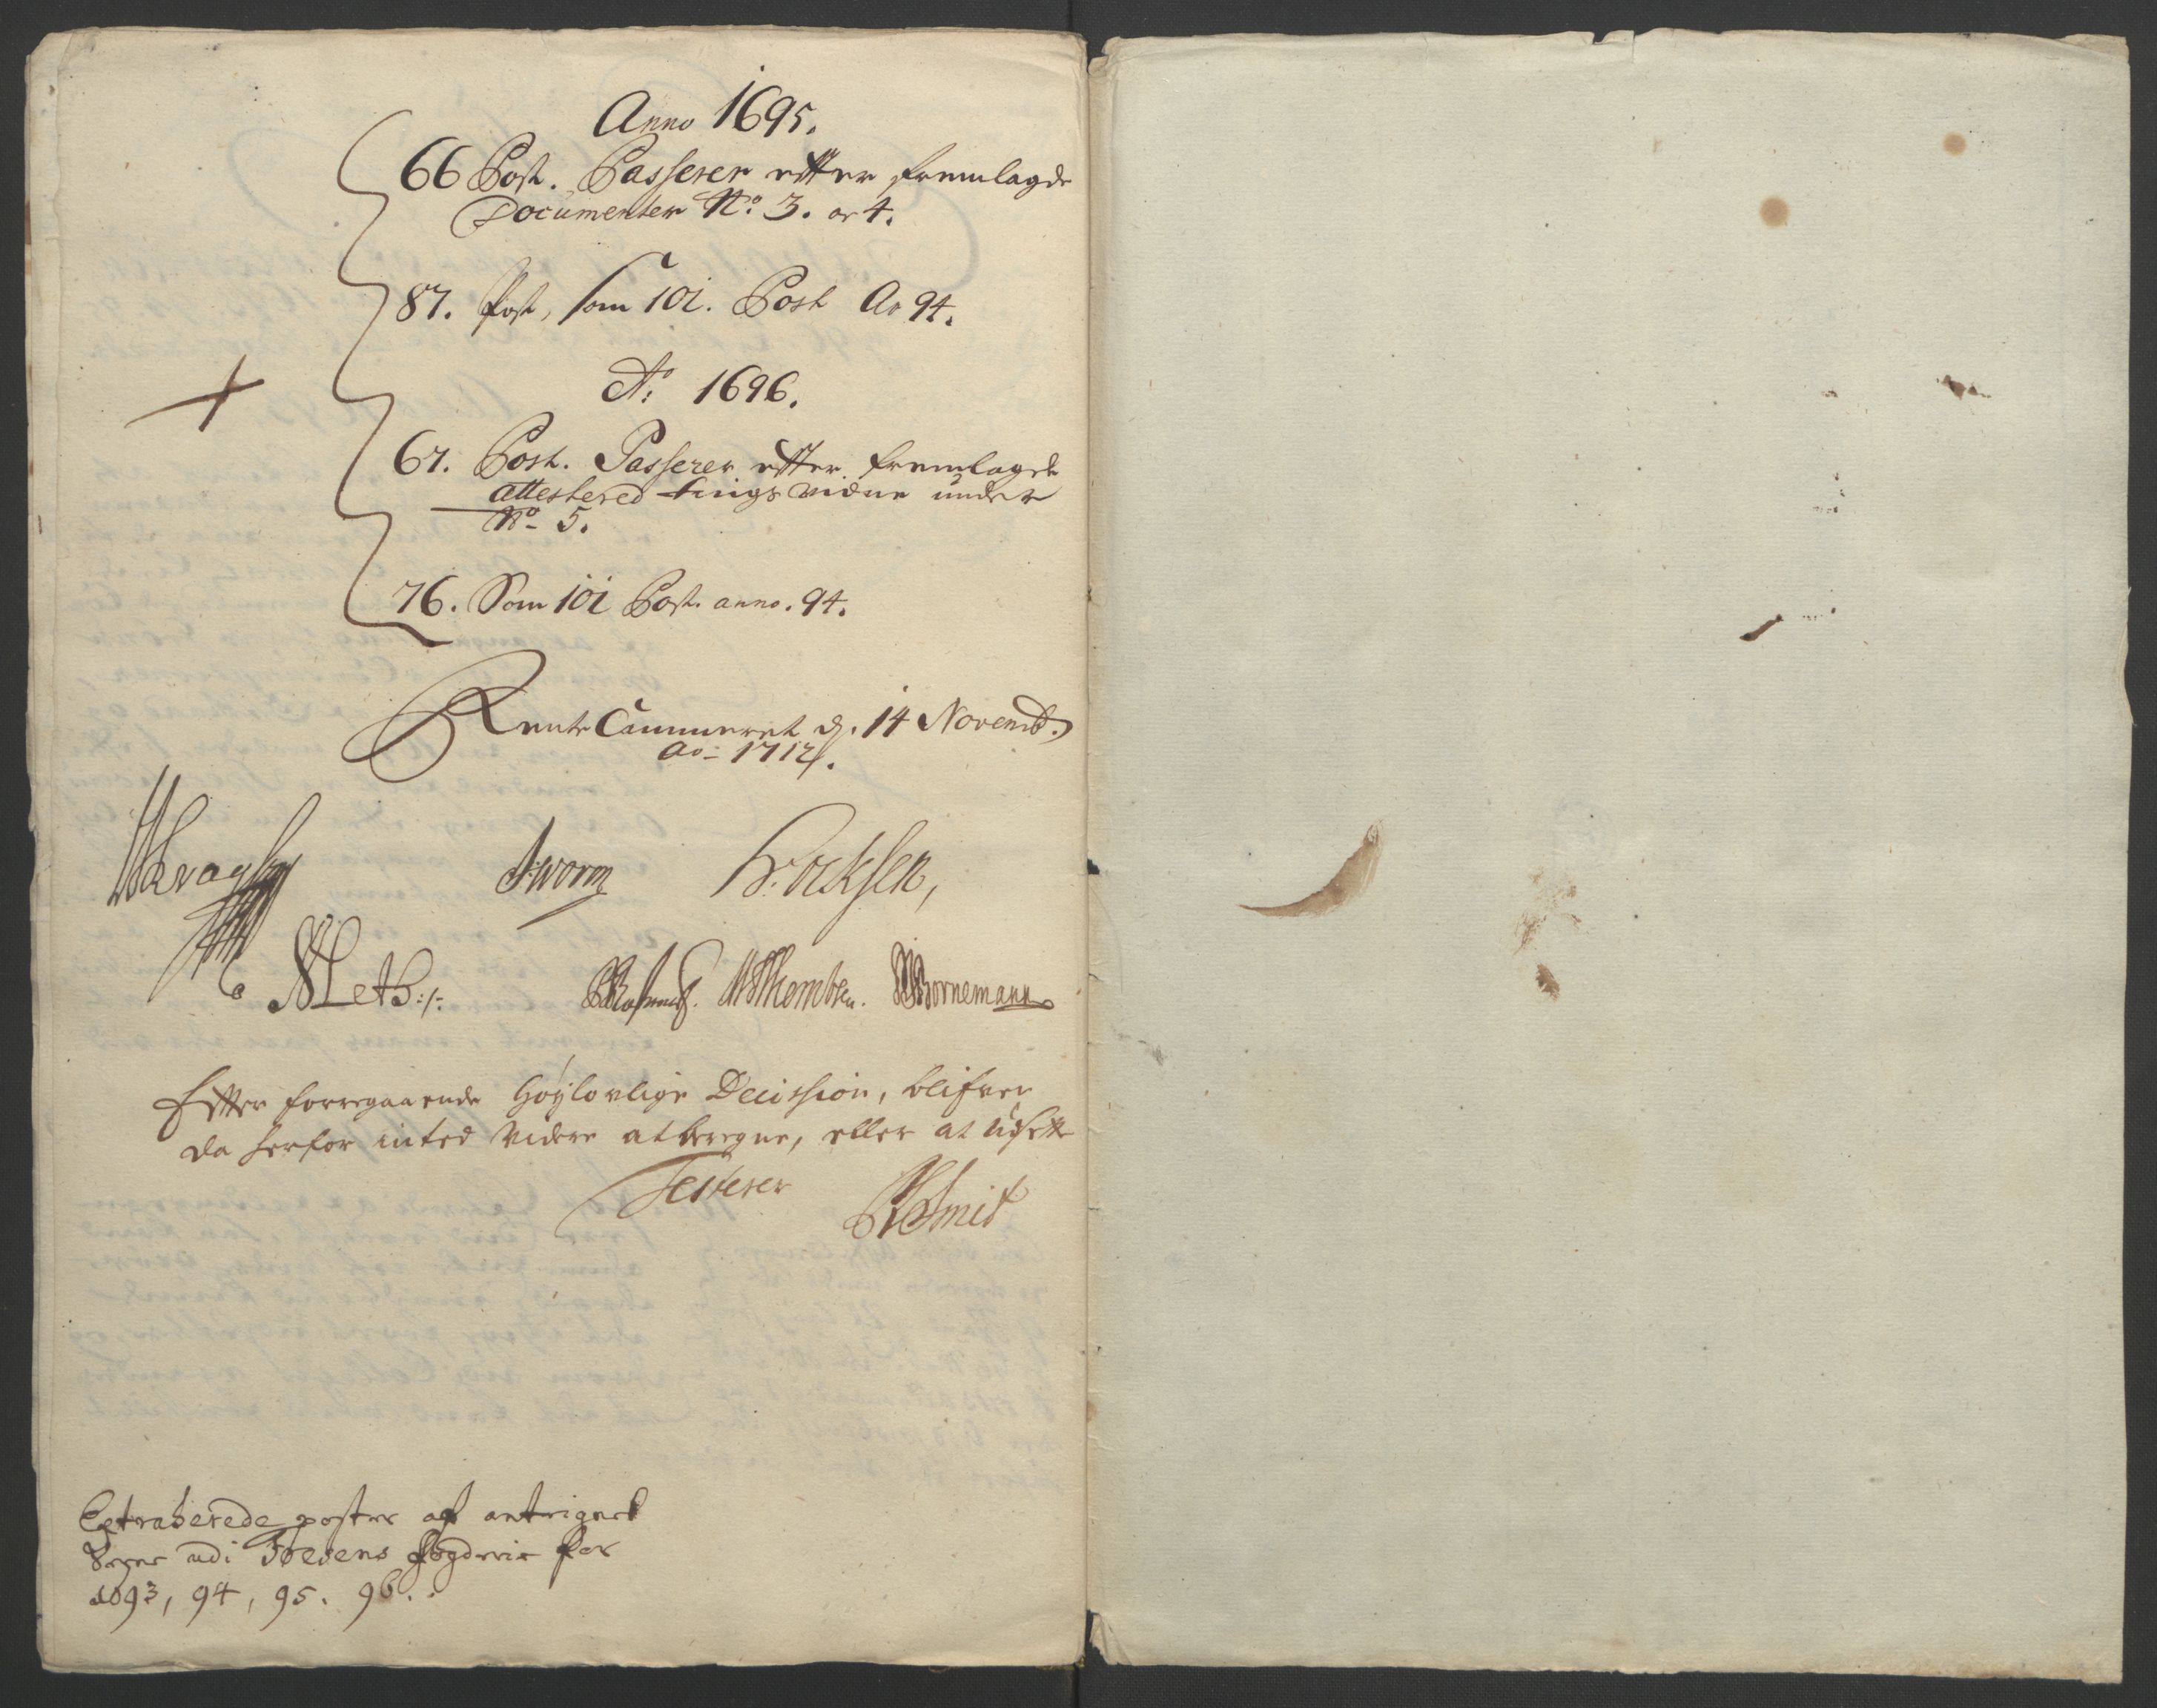 Anno 1695.
66 Post. Passerer effter fremlagde
Documenter No. 3. oc 4.
87. Post, som 101. Post Ao 94.
Ao: 1696.
67. Post. Passerer effter fremlagde
attestered tings vidne under
No. 5.
76. Som 101 Post. anno. 94.
Rente Cammeret d. 14 Novemb.
Ao: 1712.
Worm
Meth:
Thombsen. Bornemann
Effter foregaaende høylovlige Decission, blifver
da herfor inted videre at beregne, eller at udsette
Testerer Smid
Extraherede poster af antegnelsser udi Fosens fogderie for
1693, 94, 95. 96.